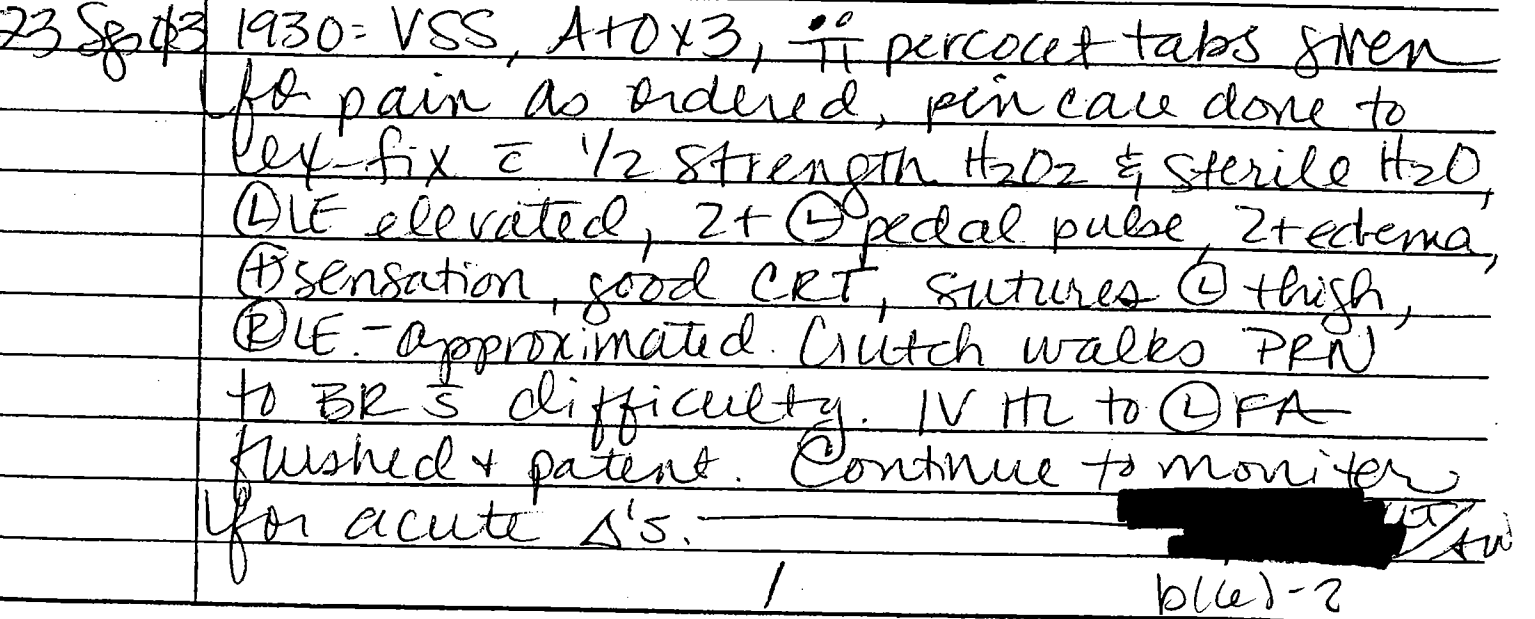 23 Sep 03 1930= VSS, A+O x 3, ii percocet tabs given
for pain as ordered, pin care done to
ex-fix c̄ 1/2 strength H2O2 & sterile H2O,
Ⓛ LE elevated, 2+ Ⓛ pedal pulse, 2+ edema,
⊕ sensation, good CRT, sutures Ⓛ thigh,
Ⓡ LE - approximated. Crutch walks PRN
to BR s̄ difficulty. IV HL to Ⓛ FA
flushed + patent. Continue to moniter
for acute Δ's.
b(6)-2